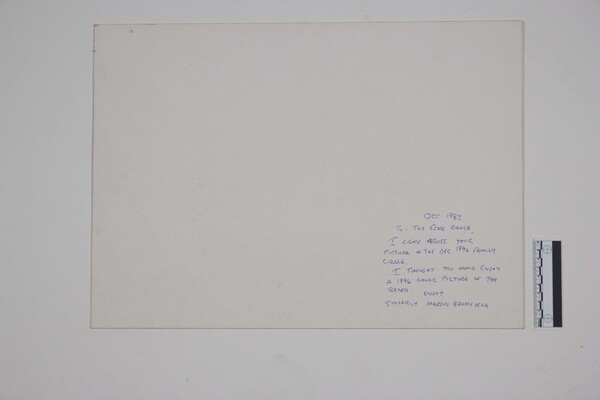 Oct 1982
To. The Ranch,
I came across your
picture in the Dec 1946 Family
Circle
I thought you would enjoy
a 1946 color picture of the
Ranch. Enjoy
Sincerely Martin